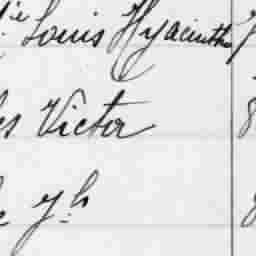 ie Louis Hyacinthe
es Victor
e Jh